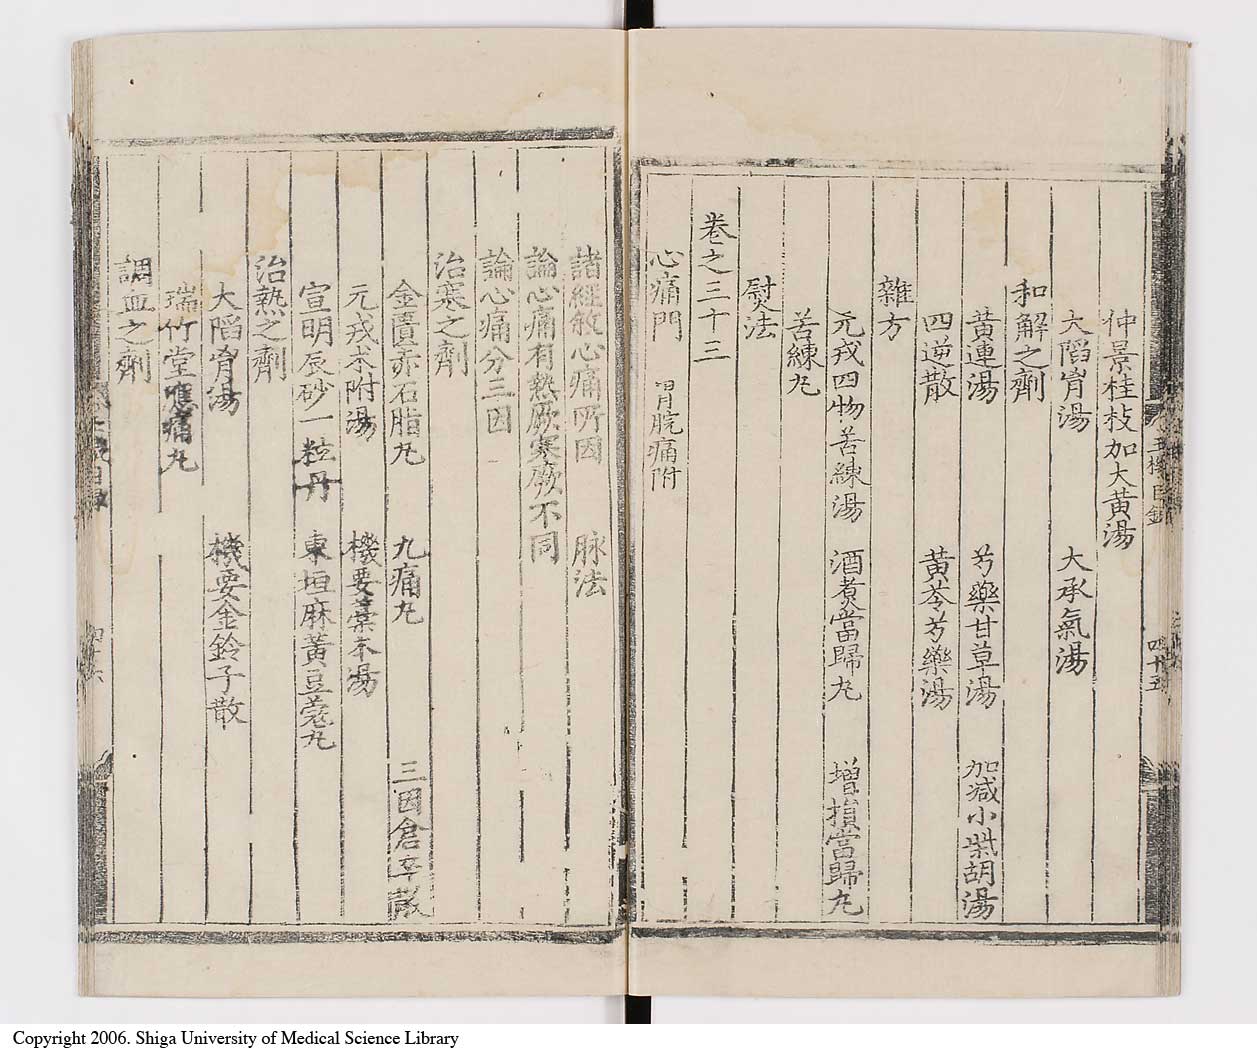 仲景桂枝加大黄湯
大陷胷湯　大承氣湯
和解之劑
黄連湯　芍藥甘草湯　加减小柴胡湯
四逆散　黄芩芍藥湯
雜方
元戎四物苦練湯　酒煑當歸丸　增損當歸丸
苦練丸
熨法
卷之三十三
心痛門　胃脘痛附
諸經敘心痛所因　脉法
論心痛有熱厥寒厥不同
論心痛分三因
治寒之劑
金匱赤石脂丸　九痛丸　三因倉卒散
元戎朮附湯　機要藁本湯
宣明辰砂一粒丹　東垣麻黄豆蔻丸
治熱之劑
大陷胷湯　機要金鈴子散
瑞竹堂應痛丸
調血之劑
四十五
四十六
Copyright 2006. Shiga University of Medical Science Library